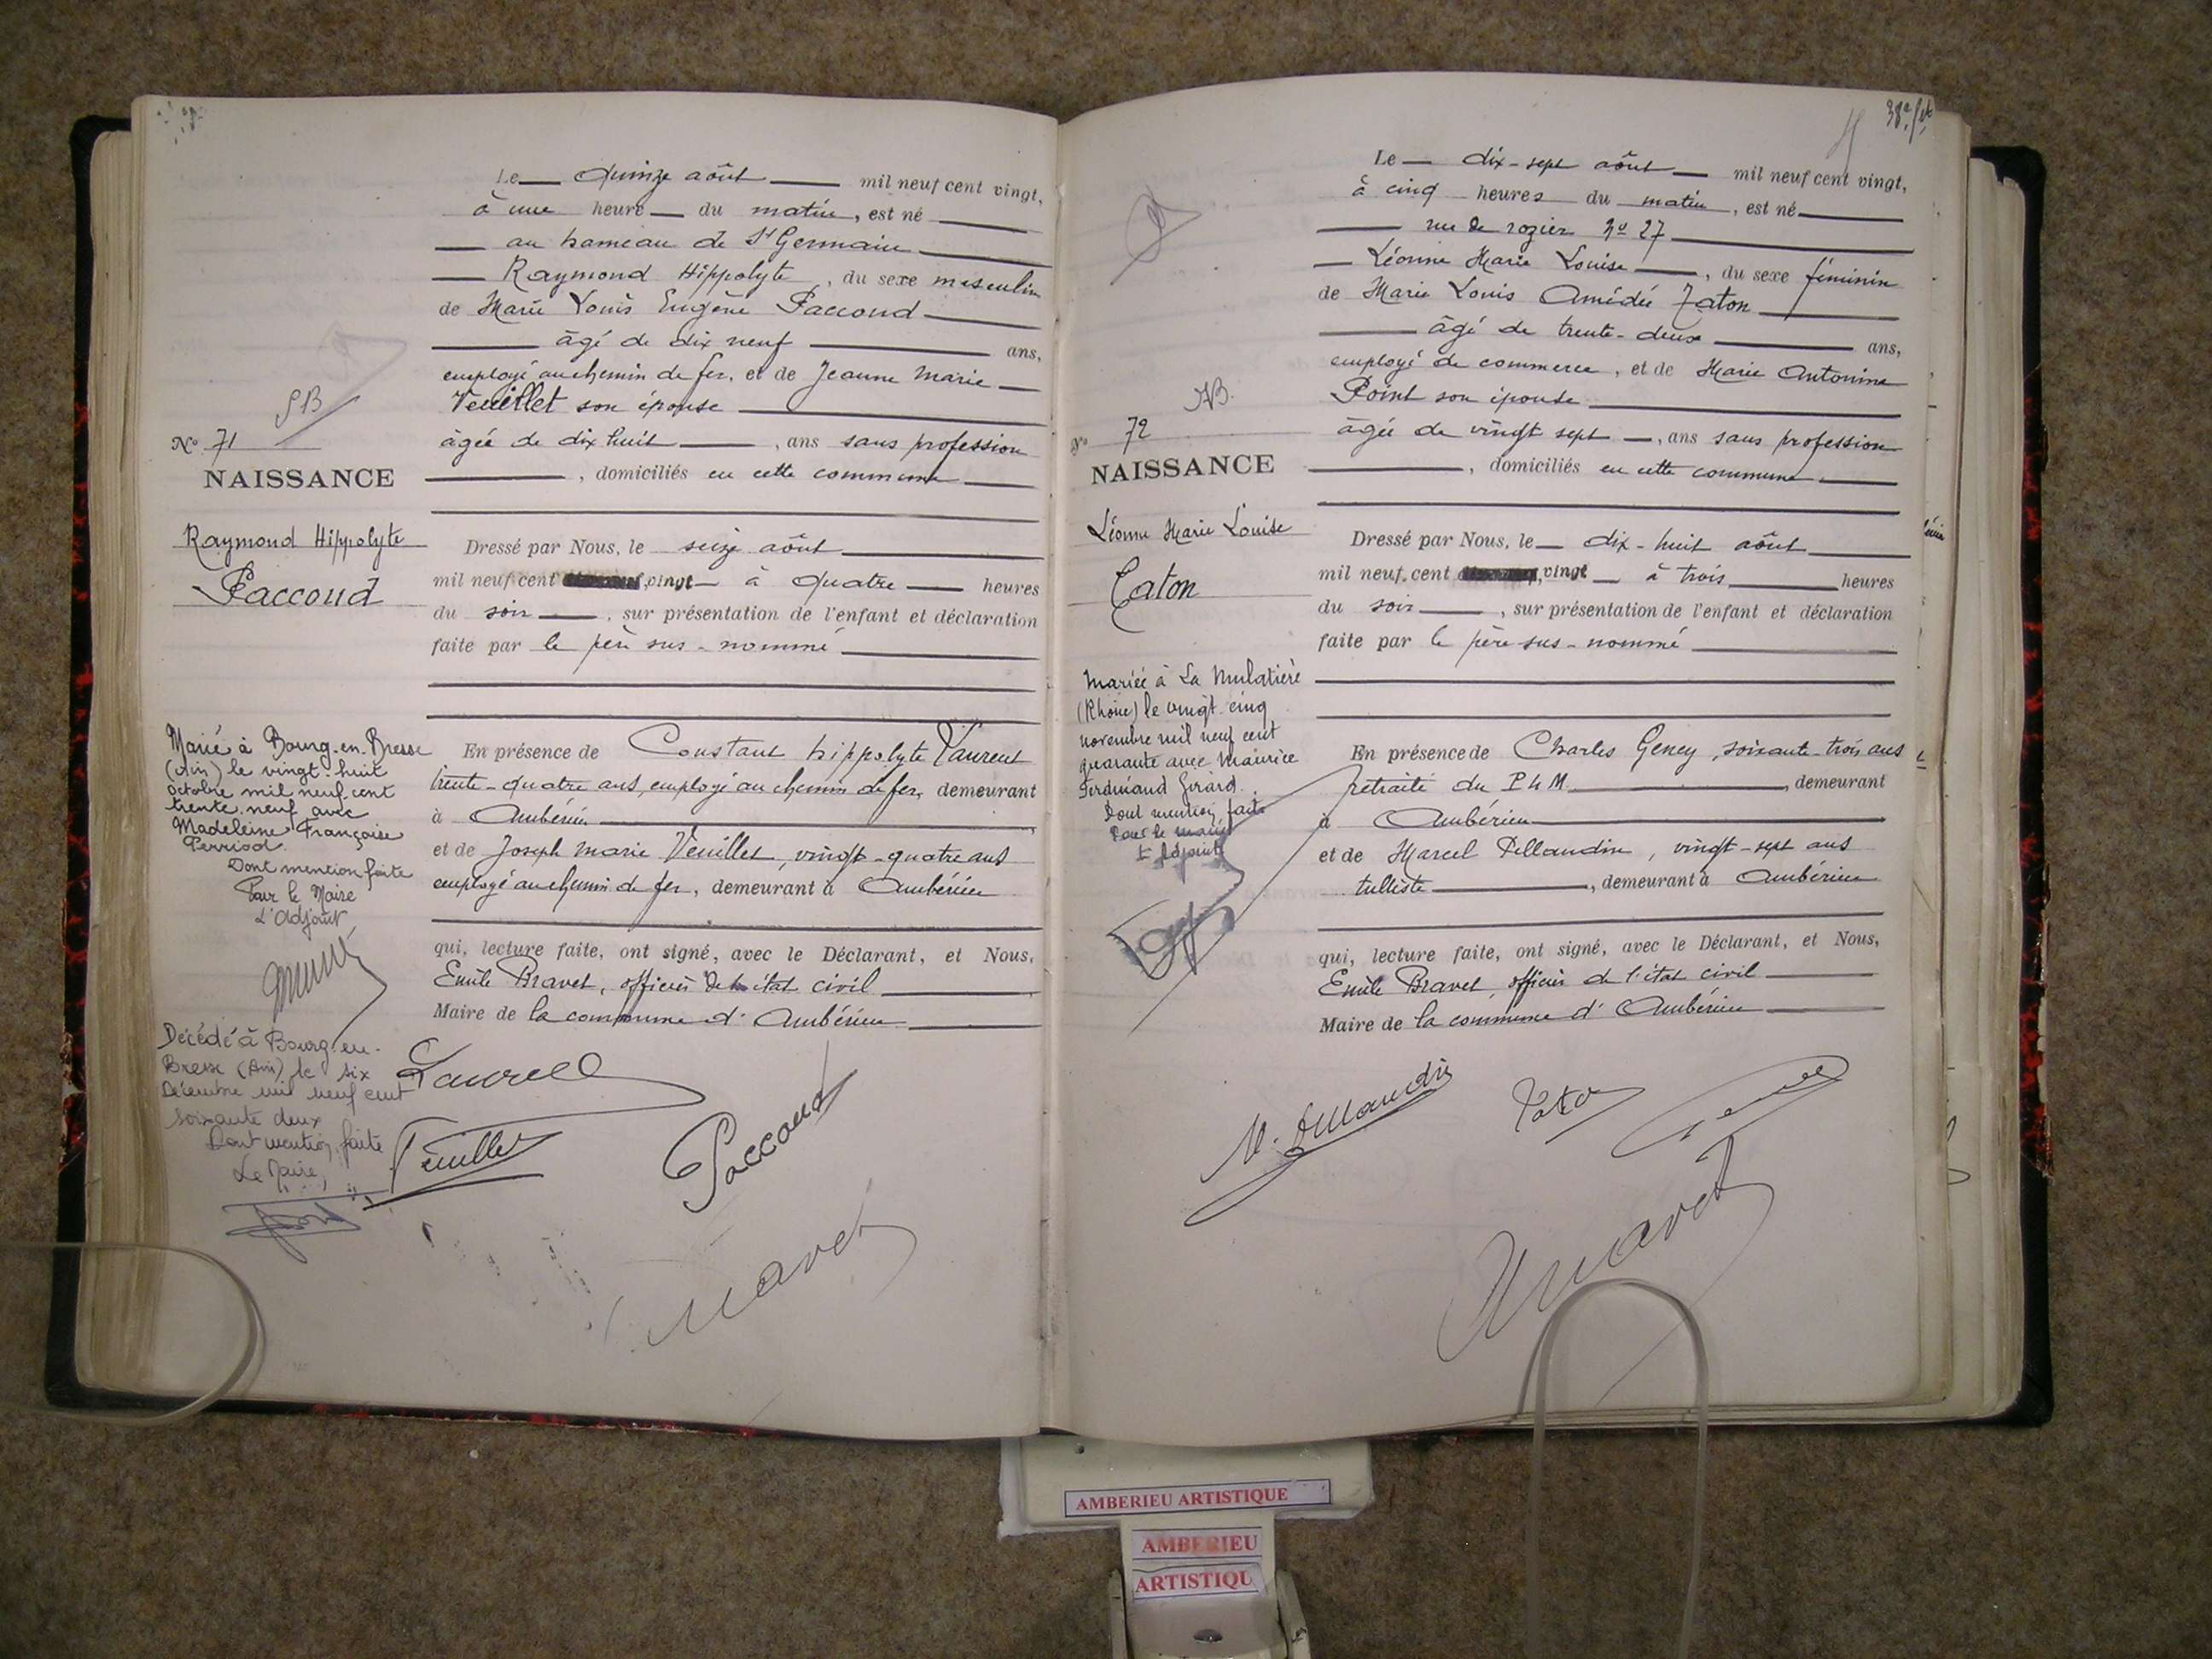 Le quinze aôut mil neuf cent vingt,
à une heure du matin, est né
au hameau de St Germain
Raymond Hippolyte, du sexe masculin
de Marie Louis Eugène Paccoud
âgé de dix neuf ans,
employé au chemin de fer, et de Jeanne Marie
Veuillet son épouse
âgée de dix huit, ans sans profession
, domiciliés en cette commune
Dressé par Nous, le seize aôut
mil neuf cent vingt à quatre heures
du soir, sur présentation de l'enfant et déclaration
faite par le père sus-nommé
En présence de Constant hippolyte Laurent
trente-quatre ans, employé au chemin de fer, demeurant
à Ambérieu
et de Joseph Marie Veuillet, vingt-quatre ans
employé au chemin de fer, demeurant à Ambérieu
qui, lecture faite, ont signé, avec le Déclarant, et Nous,
Emile Bravet, officier de l'état civil
Maire de la commune d'Ambérieu
Veuillet
Paccoud
SB
No 71
NAISSANCE
Raymond Hippolyte
Paccoud
Marié à Bourg-en-Bresse
(Ain) le vingt-huit
octobre mil neuf cent
trente-neuf avec
Madeleine Françoise
Perriod.
Dont mention faite
Pour le Maire
L'Adjoint,
Décédé à Bourg-en-
Bresse (Ain) le six
Décembre mil neuf cent
soixante deux
Dont mention faite
Le Maire,
Le dix-sept aôut mil neuf cent vingt,
à cinq heures du matin, est né
rue de rozier No 27
Léonne Marie Louise, du sexe féminin
de Marie Louis Amédée Taton
âgé de trente-deux ans,
employé de commerce, et de Marie Antonine
Point son épouse
âgée de vingt sept, ans sans profession
, domiciliés en cette commune
Dressé par Nous, le dix-huit aôut
mil neuf cent vingt à trois heures
du soir, sur présentation de l'enfant et déclaration
faite par le père sus-nommé
En présence de Charles Gency, soixante-trois ans
retraité du PLM, demeurant
à Ambérieu
et de Marcel Pellaudin, vingt-sept ans
tulliste, demeurant à Ambérieu
qui, lecture faite, ont signé, avec le Déclarant, et Nous,
Emile Bravet, officier de l'état civil
Maire de la commune d'Ambérieu
No 72
NAISSANCE
Léonne Marie Louise
Taton
Mariée à La Mulatière
(Rhône) le vingt-cinq
novembre mil neuf cent
quarante avec Maurice
Ferdinand Girard.
Dont mention faite
Pour le maire
L'Adjoint
AMBERIEU ARTISTIQUE
AMBERIEU
ARTISTIQU